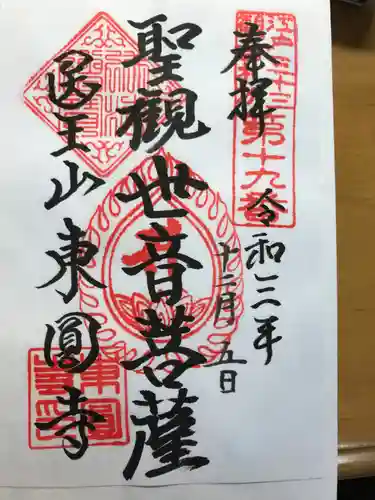 奉拝
第十九番
令和三年
十二月五日
聖観世音菩薩
医王山東圓寺